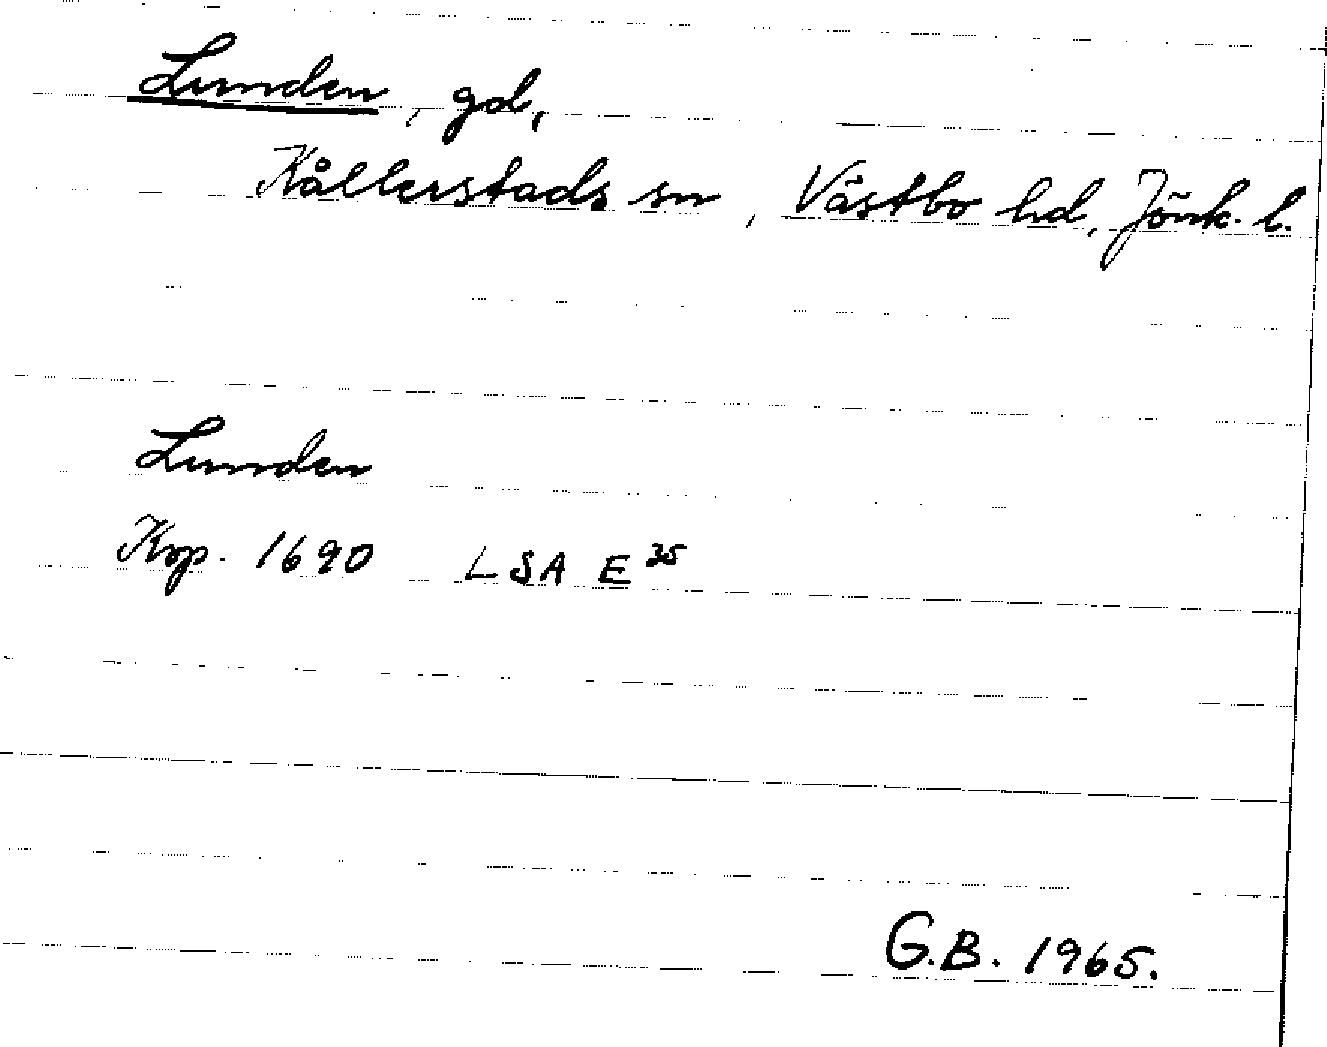 Lunden, gd,
Kållerstads sn, Västbo hd, Jönk. l.
Lunden
Kop. 1690 LSA E 35
G.B. 1965.